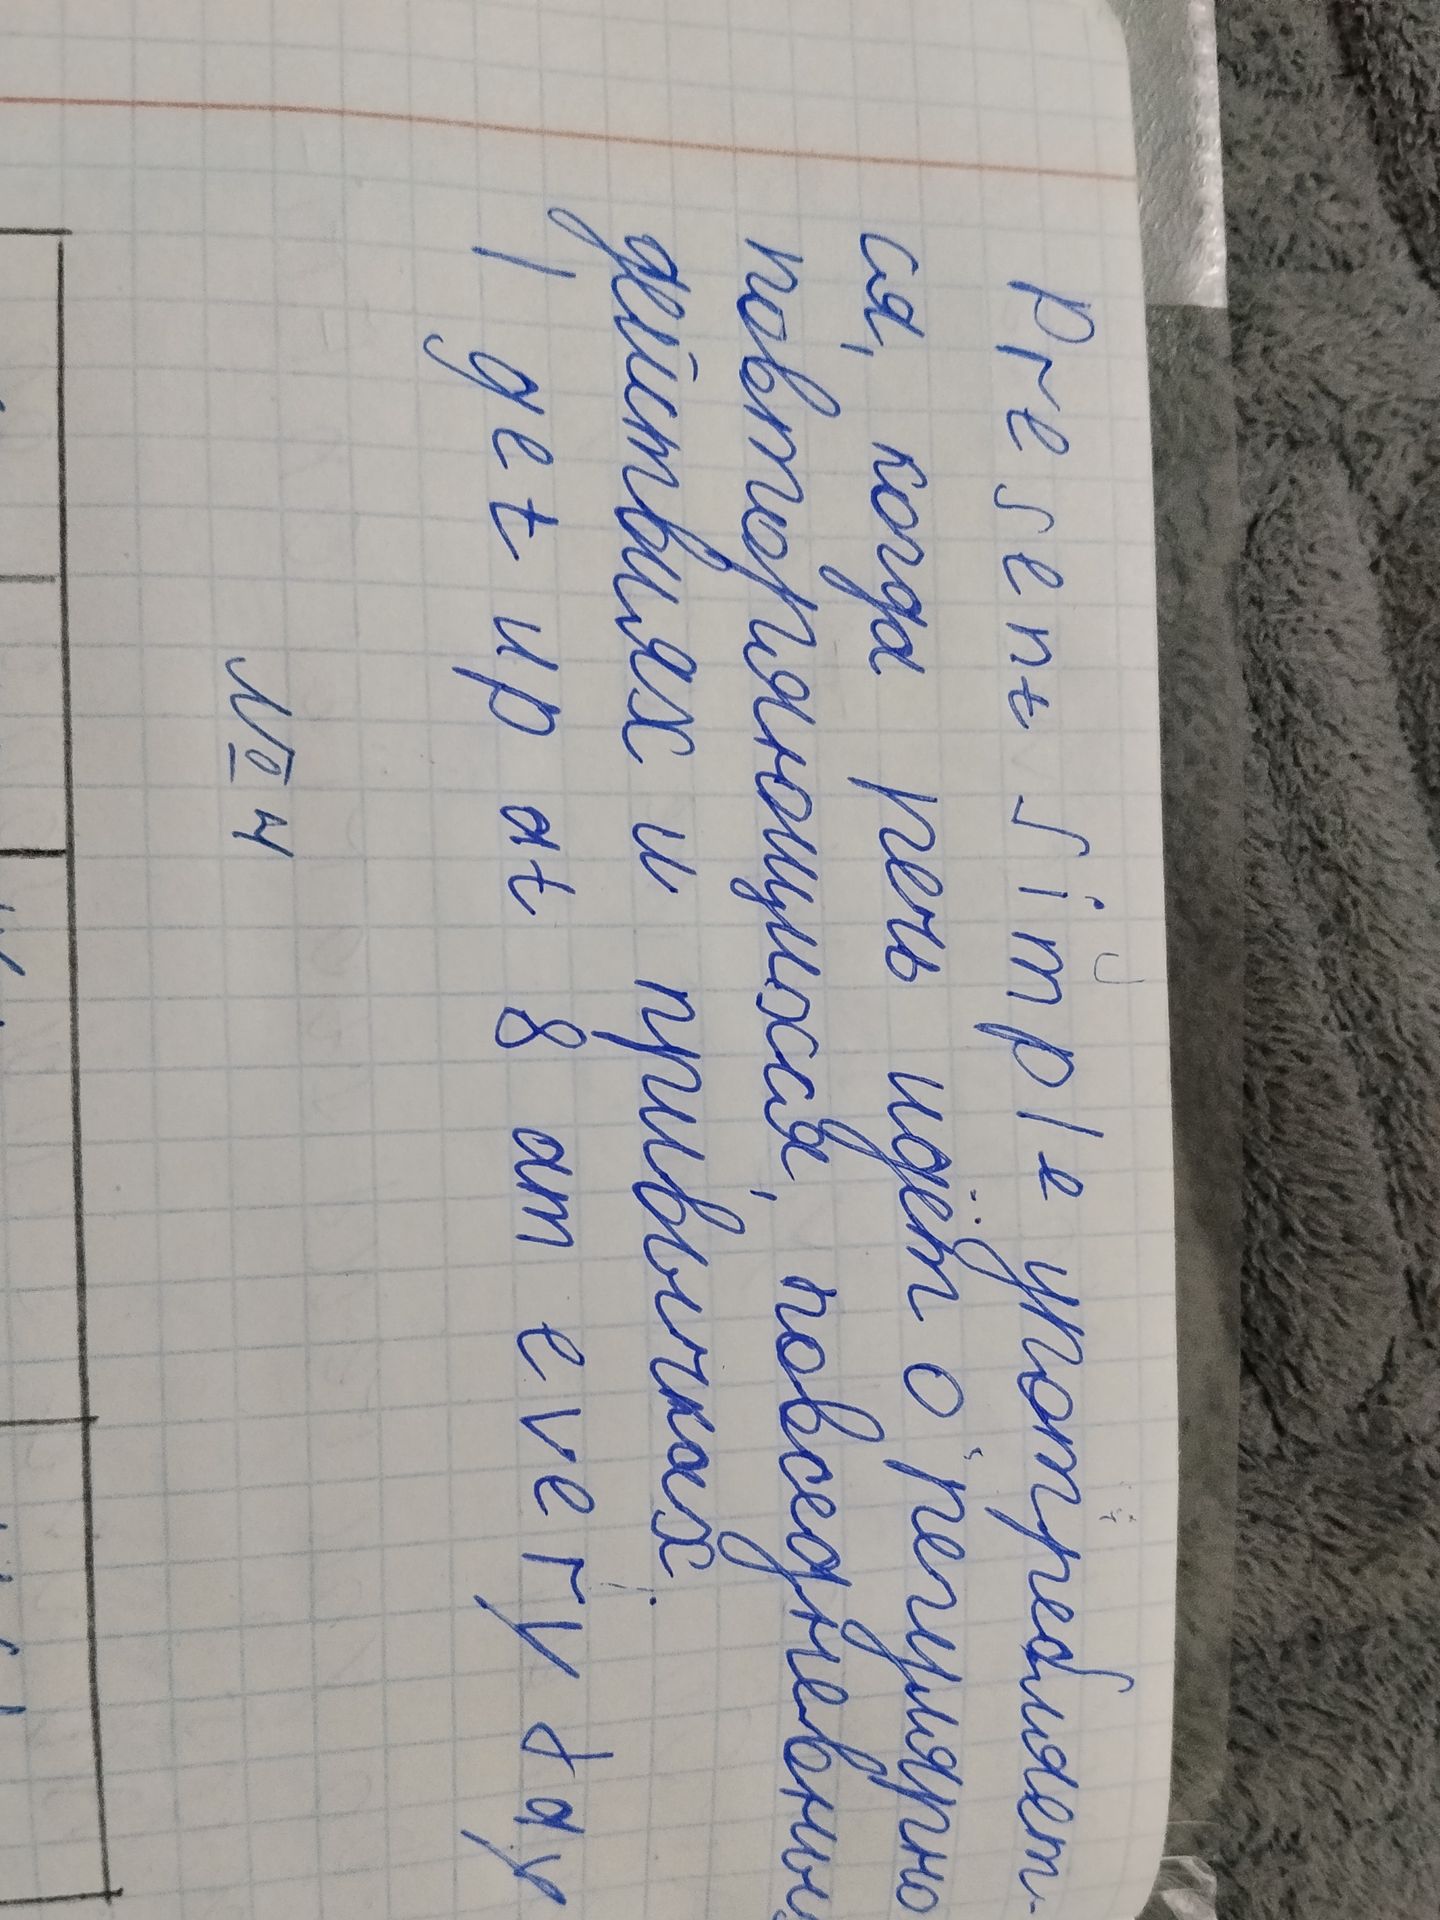 Present Simple употребляет-
ся, когда речь идёт о регулярно
повторяющихся, повседневных
действиях и привычках.
I get up at 8 am every day
№ 4